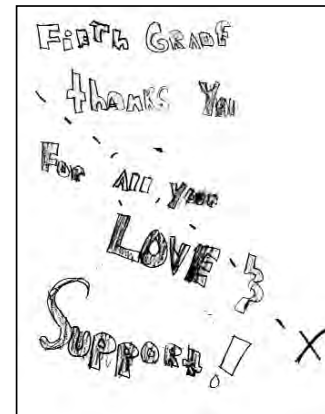 FiFTh GRADE
thanks You
FOR All your
LOVE &
SUPPORt!
X